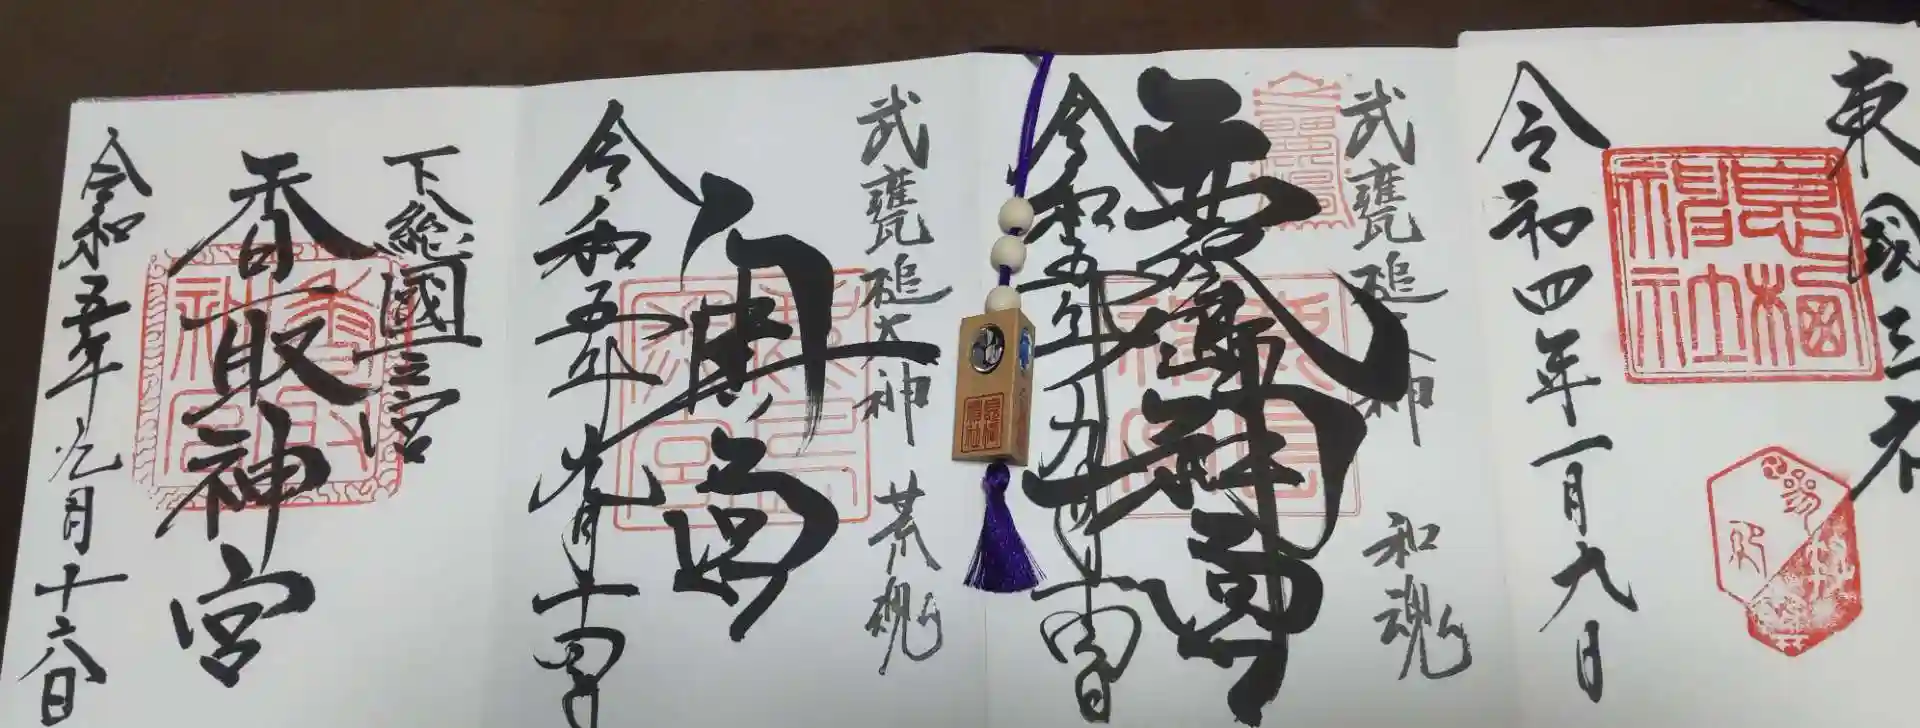 東國三社
息栖神社
令和四年一月九日
武甕槌大神 和魂
鹿島神宮
令和五年九月十四日
武甕槌大神 荒魂
奥宮
令和五年九月十四日
下総國一之宮
香取神宮
令和五年九月十六日